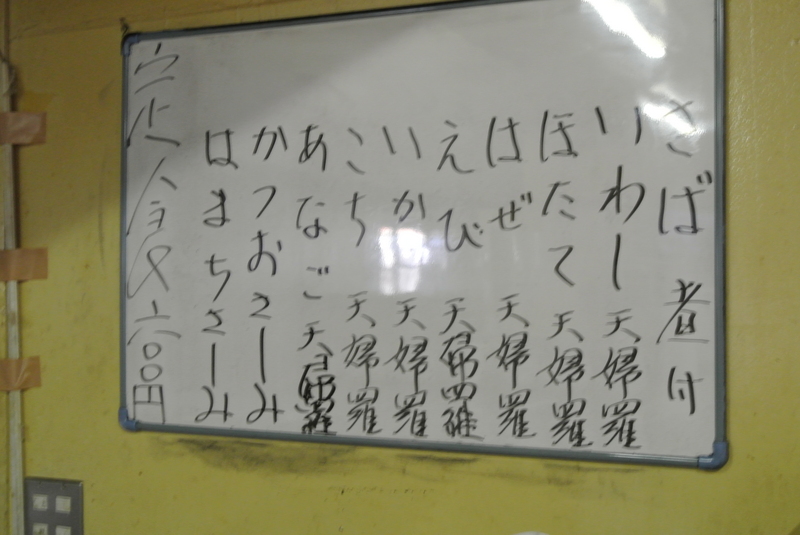 さば 煮付
いわし 天婦羅
ほたて 天婦羅
はぜ 天婦羅
えび 天婦羅
いか 天婦羅
こち 天婦羅
あなご 天婦羅
かつおさしみ
はまちさしみ
定食 六〇〇円